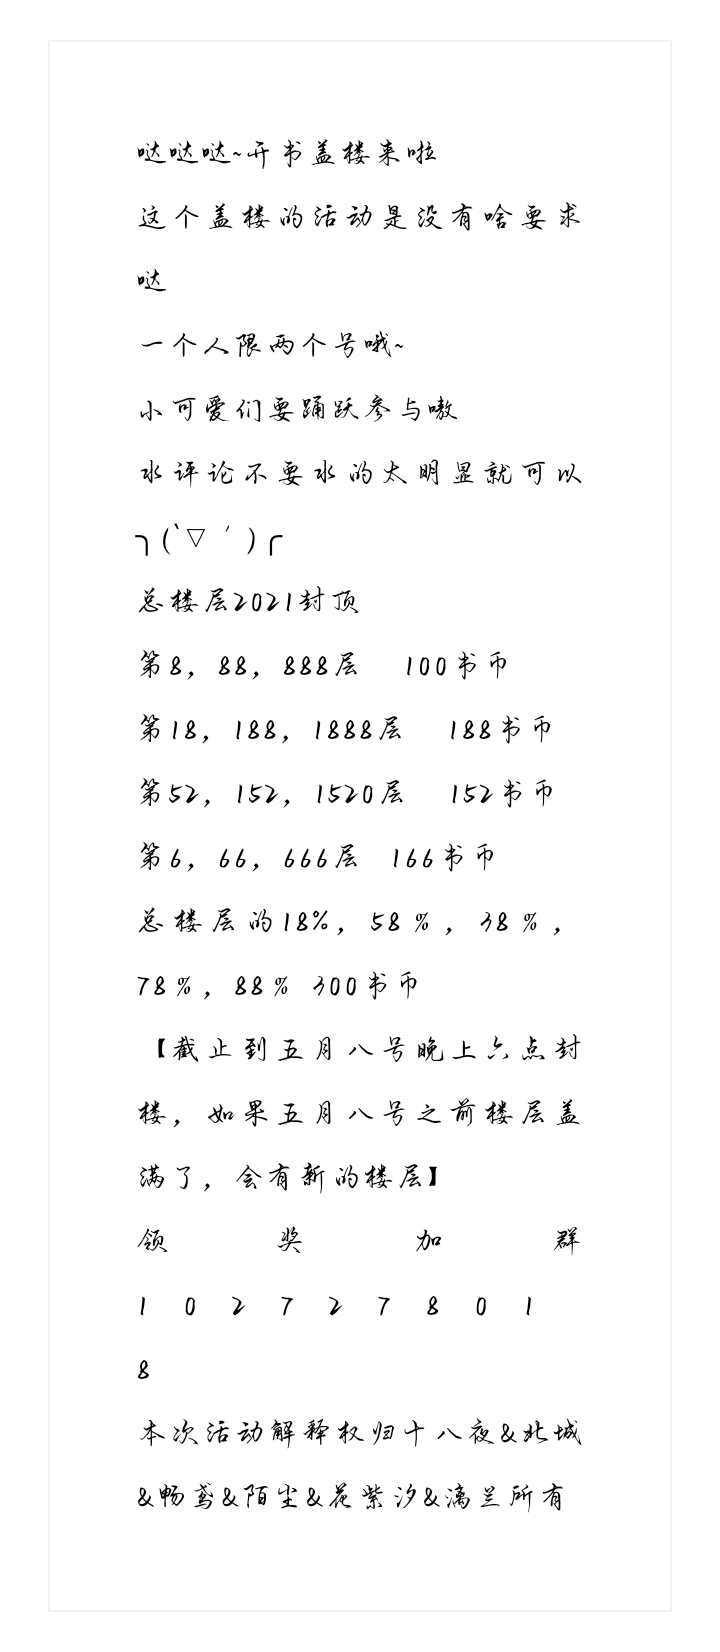 哒哒哒~开书盖楼来啦
这个盖楼的活动是没有啥要求
哒
一个人限两个号哦~
小可爱们要踊跃参与嗷
水评论不要水的太明显就可以
╮(‵▽′)╭
总楼层2021封顶
第8，88，888层 100书币
第18，188，1888层 188书币
第52，152，1520层 152书币
第6，66，666层 166书币
总楼层的18%，58%，38%，
78%，88% 300书币
【截止到五月八号晚上六点封
楼，如果五月八号之前楼层盖
满了，会有新的楼层】
领奖加群
1 0 2 7 2 7 8 0 1
8
本次活动解释权归十八夜&北城
&畅鸢&陌尘&花紫汐&漓兰所有